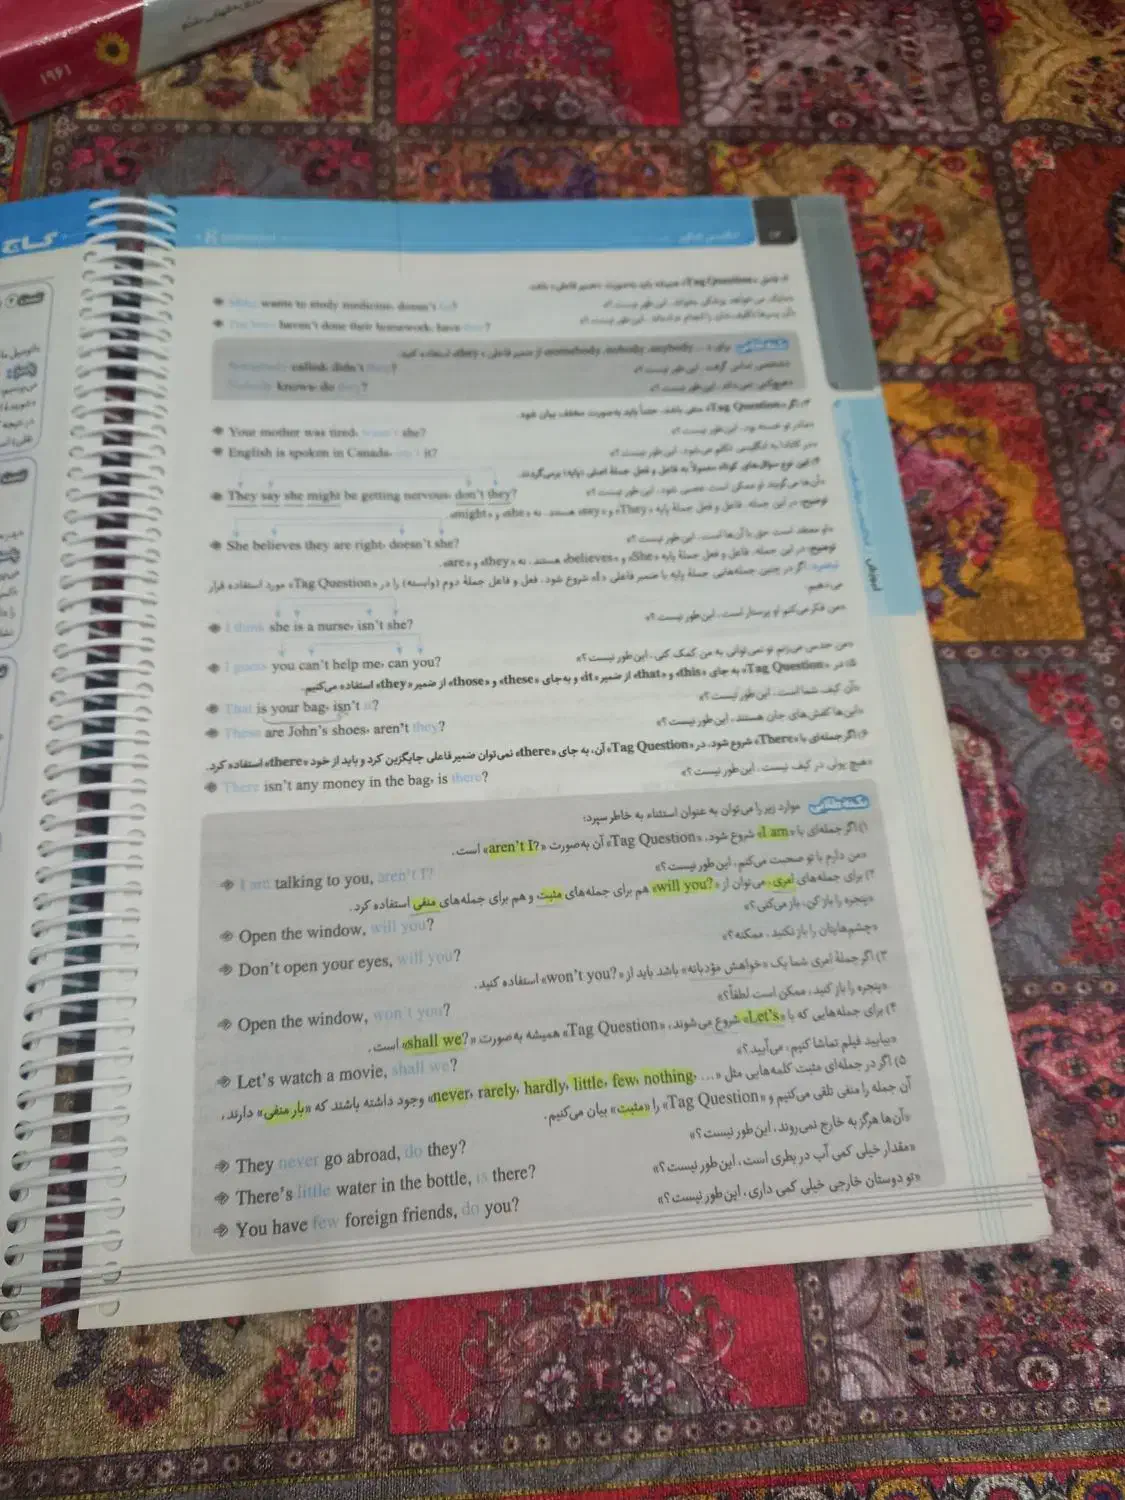 ۱۹۶۱
گاج
۲) فاعل «Tag Question» همیشه باید به‌صورت «ضمیر فاعلی» باشد.
wants to study medicine, doesn't he?
haven't done their homework, have they?
نکته طلایی برای somebody, nobody, anybody, ... از ضمیر فاعلی «they» استفاده کنید.
Somebody called, didn't they?
Nobody knows, do they?
۳) اگر «Tag Question» منفی باشد، حتماً باید به‌صورت مخفف بیان شود.
Your mother was tired, wasn't she? «مادر تو خسته بود، این‌طور نیست؟»
English is spoken in Canada, isn't it? «در کانادا به انگلیسی تکلم می‌شود، این‌طور نیست؟»
۴) این نوع سؤال‌های کوتاه معمولاً به فاعل و فعل جملهٔ اصلی (پایه) برمی‌گردند.
They say she might be getting nervous, don't they? «آن‌ها می‌گویند او ممکن است عصبی شود، این‌طور نیست؟»
توضیح: در این جمله، فاعل و فعل جملهٔ پایه «They» و «say» هستند، نه «she» و «might».
She believes they are right, doesn't she? «او معتقد است حق با آن‌ها است، این‌طور نیست؟»
توضیح: در این جمله، فاعل و فعل جملهٔ پایه «She» و «believes» هستند، نه «they» و «are».
تبصره: اگر در چنین جمله‌هایی جملهٔ پایه با ضمیر فاعلی «I» شروع شود، فعل و فاعل جملهٔ دوم (وابسته) را در «Tag Question» مورد استفاده قرار
می‌دهیم.
I think she is a nurse, isn't she? «من فکر می‌کنم او پرستار است، این‌طور نیست؟»
I guess you can't help me, can you? «من حدس می‌زنم تو نمی‌توانی به من کمک کنی، این‌طور نیست؟»
۵) در «Tag Question» به جای «this» و «that» از ضمیر «it» و به جای «these» و «those» از ضمیر «they» استفاده می‌کنیم.
That is your bag, isn't it? «آن کیف شما است، این‌طور نیست؟»
These are John's shoes, aren't they? «این‌ها کفش‌های جان هستند، این‌طور نیست؟»
۶) اگر جمله‌ای با «There» شروع شود، در «Tag Question» آن، به جای «there» نمی‌توان ضمیر فاعلی جایگزین کرد و باید از خود «there» استفاده کرد.
There isn't any money in the bag, is there? «هیچ پولی در کیف نیست، این‌طور نیست؟»
نکته طلایی موارد زیر را می‌توان به عنوان استثناء به خاطر سپرد:
۱) اگر جمله‌ای با «I am» شروع شود، «Tag Question» آن به‌صورت «aren't I?» است.
I am talking to you, aren't I? «من دارم با تو صحبت می‌کنم، این‌طور نیست؟»
۲) برای جمله‌های امری، می‌توان از «will you?» هم برای جمله‌های مثبت و هم برای جمله‌های منفی استفاده کرد.
Open the window, will you? «پنجره را باز کن، باز می‌کنی؟»
Don't open your eyes, will you? «چشم‌هایتان را باز نکنید، ممکنه؟»
۳) اگر جملهٔ امری شما یک «خواهش مؤدبانه» باشد باید از «won't you?» استفاده کنید.
Open the window, won't you? «پنجره را باز کنید، ممکن است لطفاً؟»
۴) برای جمله‌هایی که با «Let's» شروع می‌شوند، «Tag Question» همیشه به‌صورت «shall we?» است.
Let's watch a movie, shall we? «بیایید فیلم تماشا کنیم، می‌آیید؟»
۵) اگر در جمله‌ای مثبت کلمه‌هایی مثل «... ,never, rarely, hardly, little, few, nothing» وجود داشته باشند که «بار منفی» دارند،
آن جمله را منفی تلقی می‌کنیم و «Tag Question» را «مثبت» بیان می‌کنیم.
They never go abroad, do they? «آن‌ها هرگز به خارج نمی‌روند، این‌طور نیست؟»
There's little water in the bottle, is there? «مقدار خیلی کمی آب در بطری است، این‌طور نیست؟»
You have few foreign friends, do you? «تو دوستان خارجی خیلی کمی داری، این‌طور نیست؟»